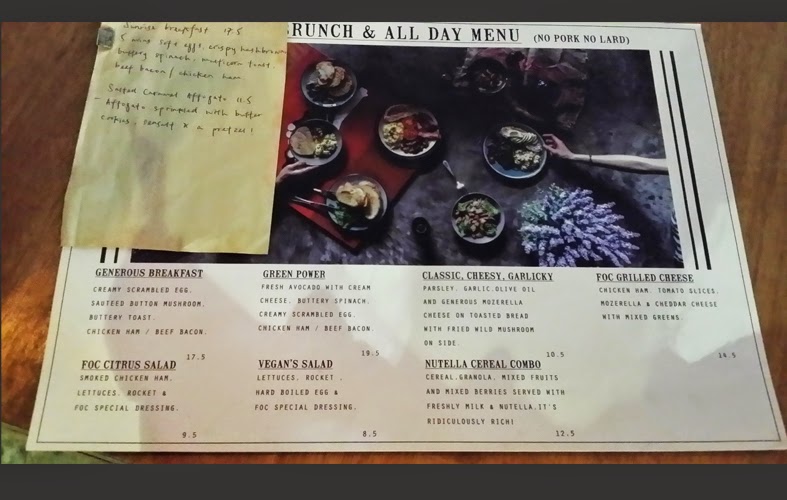 Sunrise breakfast 17.5
soft eggs, crispy hashbrown
buttery spinach, multicorn toast.
beef bacon / chicken ham.
Salted Caramel Affogato 11.5
- Affogato sprinkled with butter
cookies, seasalt & a pretzel!
BRUNCH & ALL DAY MENU (NO PORK NO LARD)
GENEROUS BREAKFAST
CREAMY SCRAMBLED EGG.
SAUTEED BUTTON MUSHROOM.
BUTTERY TOAST.
CHICKEN HAM / BEEF BACON.
17.5
GREEN POWER
FRESH AVOCADO WITH CREAM
CHEESE. BUTTERY SPINACH.
CREAMY SCRAMBLED EGG.
CHICKEN HAM / BEEF BACON.
19.5
CLASSIC, CHEESY, GARLICKY
PARSLEY. GARLIC.OLIVE OIL
AND GENEROUS MOZERELLA
CHEESE ON TOASTED BREAD
WITH FRIED WILD MUSHROOM
ON SIDE.
10.5
FOC GRILLED CHEESE
CHICKEN HAM. TOMATO SLICES.
MOZERELLA & CHEDDAR CHEESE
WITH MIXED GREENS.
14.5
FOC CITRUS SALAD
SMOKED CHICKEN HAM.
LETTUCES. ROCKET &
FOC SPECIAL DRESSING.
9.5
VEGAN'S SALAD
LETTUCES. ROCKET .
HARD BOILED EGG &
FOC SPECIAL DRESSING.
8.5
NUTELLA CEREAL COMBO
CEREAL.GRANOLA. MIXED FRUITS
AND MIXED BERRIES SERVED WITH
FRESHLY MILK & NUTELLA.IT'S
RIDICULOUSLY RICH!
12.5